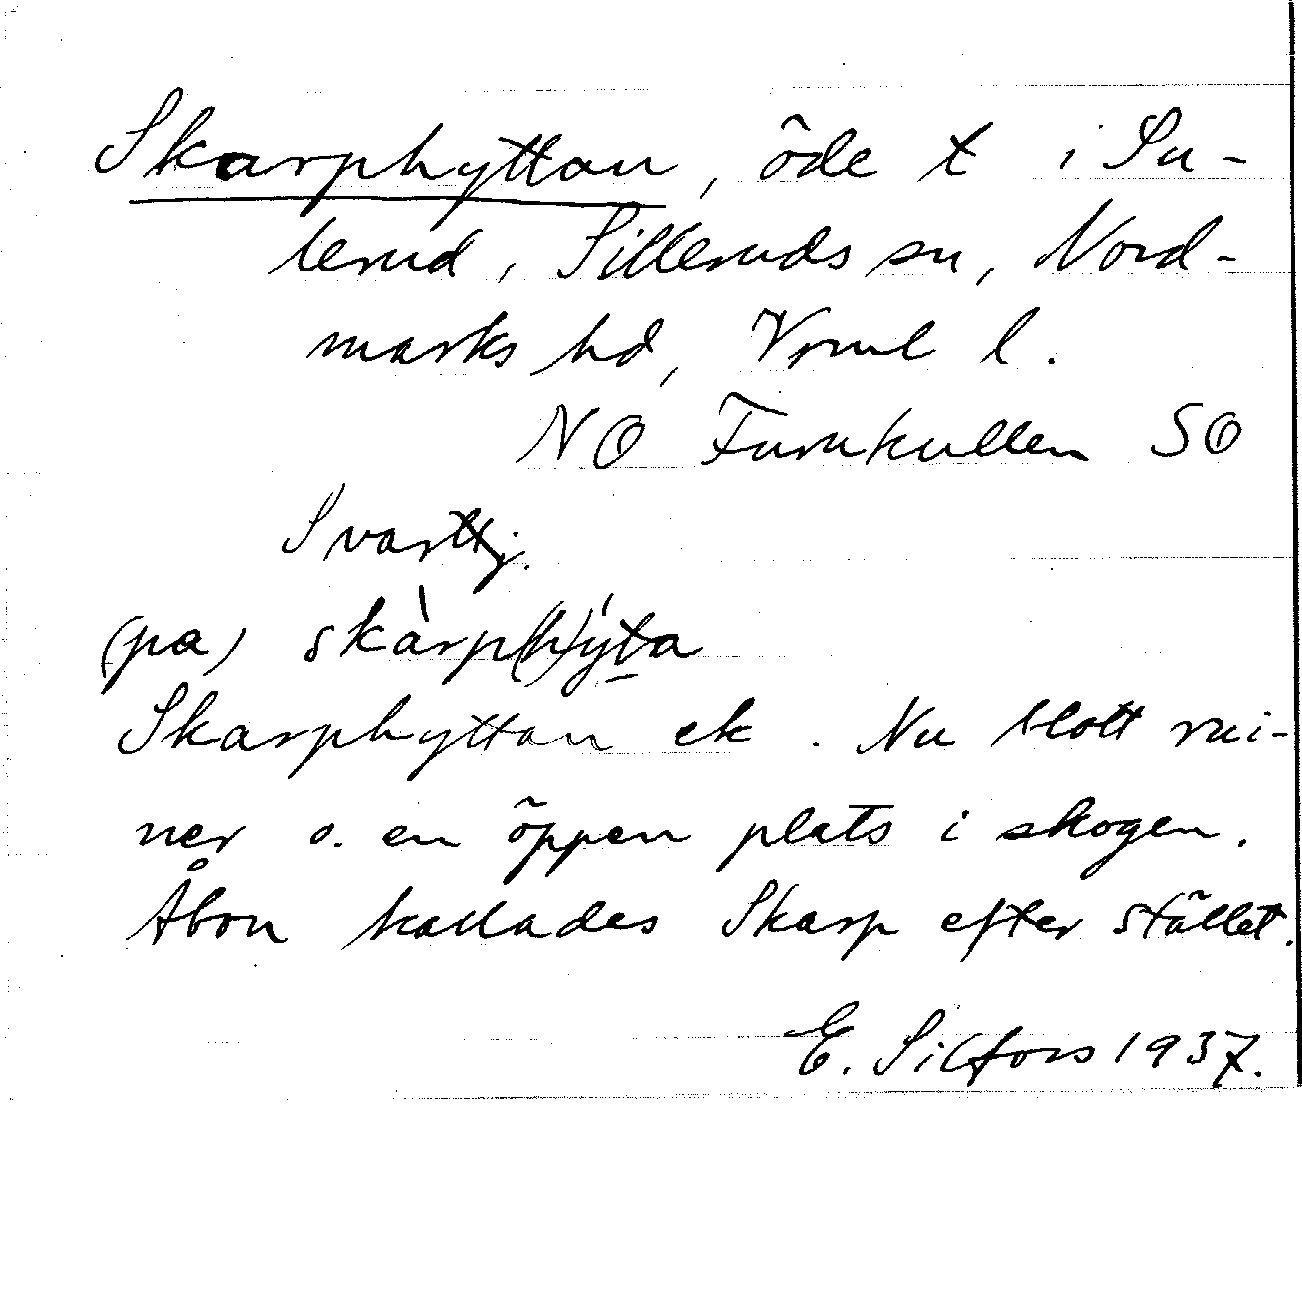 Skarphyttan, öde t i Su-
lerud, Silleruds sn, Nord-
marks hd, Vrml l.
NO Furukullen SO
Svarttj.
(pa) skàrp(h)ýta
Skarphyttan ek. Nu blott rui-
ner o. en öppen plats i skogen.
Åbon kallades Skarp efter stället.
E. Silfors 1937.